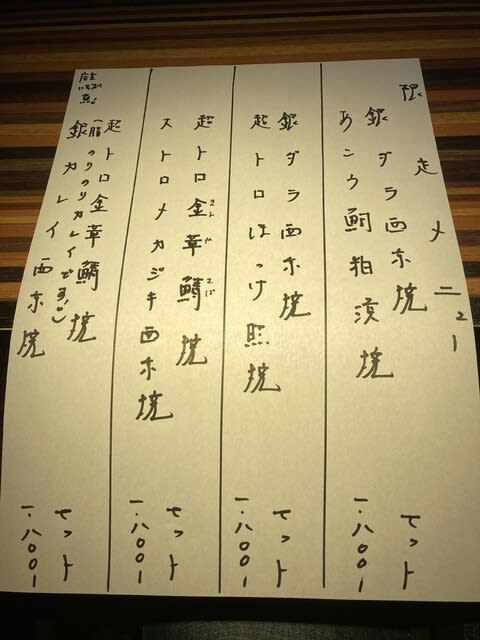 限定メニュー
銀ダラ西京焼
あこう鯛粕漬焼
セット
一・八〇〇一
銀ダラ西京焼
超トロほっけ照焼
セット
一・八〇〇一
超トロ金華鯖焼
ストロメカジキ西京焼
セット
一・八〇〇一
超トロ金華鯖焼
(脂のりのりカレイです！)
銀カレイ西京焼
セット
一・八〇〇一